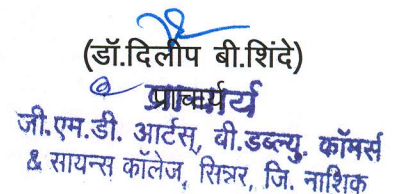 (डॉ.दिलीप बी.शिंदे)
प्राचार्य
जी.एम.डी. आर्टस्, बी.डब्ल्यु. कॉमर्स
& सायन्स कॉलेज, सिन्नर, जि. नाशिक